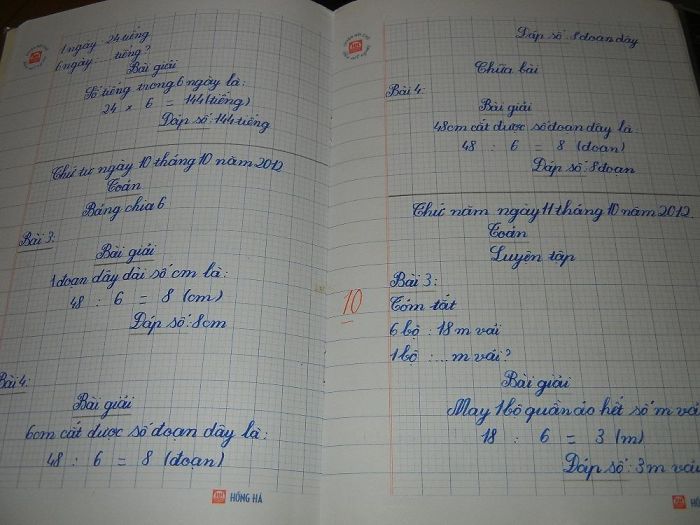 1 ngày 24 tiếng
6 ngày ... tiếng?
Bài giải
Số tiếng trong 6 ngày là:
24 x 6 = 144 (tiếng)
Đáp số: 144 tiếng
Thứ tư ngày 10 tháng 10 năm 2012
Toán
Bảng chia 6
Bài 3:
Bài giải
1 đoạn dây dài số cm là:
48 : 6 = 8 (cm)
Đáp số: 8cm
Bài 4:
Bài giải
6cm cắt được số đoạn dây là:
48 : 6 = 8 (đoạn)
HỒNG HÀ
Đáp số: 8 đoạn dây
Chữa bài
Bài 4:
Bài giải
48cm cắt được số đoạn dây là:
48 : 6 = 8 (đoạn)
Đáp số: 8 đoạn
Thứ năm ngày 11 tháng 10 năm 2012
Toán
Luyện tập
Bài 3:
10
Tóm tắt
6 bộ : 18 m vải
1 bộ : ... m vải?
Bài giải
May 1 bộ quần áo hết số m vải
18 : 6 = 3 (m)
Đáp số: 3 m vải